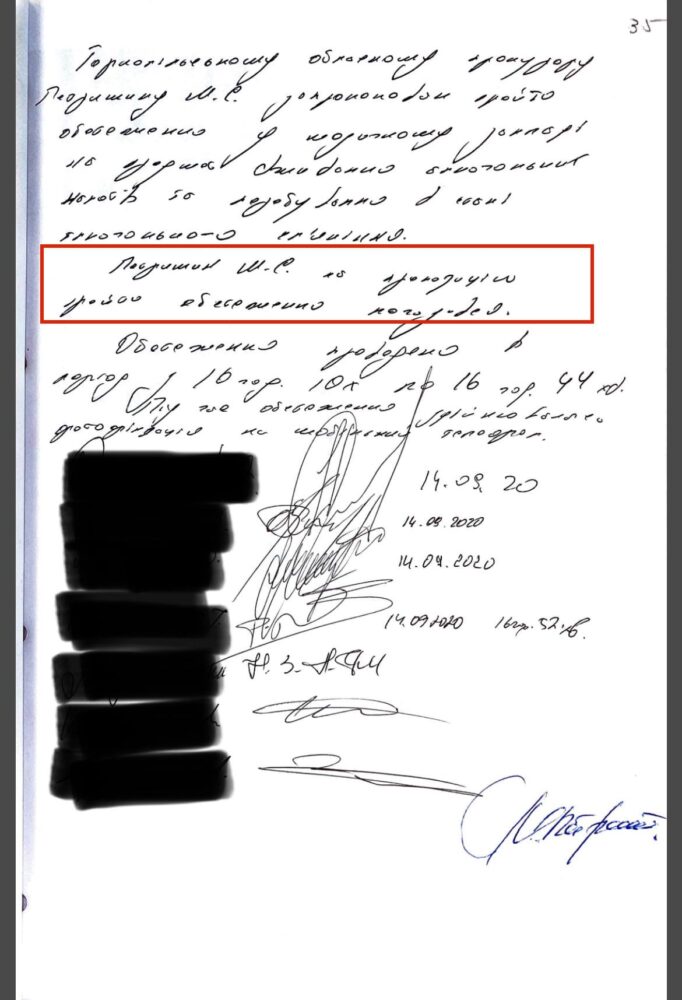 35
Тернопільському обласному прокурору
Петришину М.С. запропоновано пройти
обстеження у медичному закладі
на предмет вживання алкогольних
напоїв та перебування в стані
алкогольного сп'яніння.
Петришин М.С. на пропозицію
пройти обстеження погодився.
Обстеження проведено в
період з 16 год. 10 хв по 16 год. 44 хв.
Під час обстеження здійснювалась
фотофіксація на мобільний телефон.
14.09.20
14.09.2020
14.09.2020
14.09.2020 16 год. 52 хв.